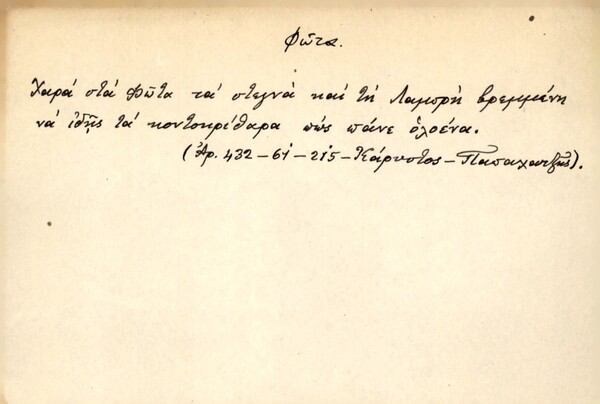 Φῶτα.
Χαρά στά Φῶτα τά στεγνά καί τή Λαμπρή βρεμμένη
νά ἰδῇς τά κοντοκρίθαρα πῶς πάνε ὁλοένα.
(Ἀρ. 432 – 61 – 215 – Κάρυστος – Παπαχατζῆς).